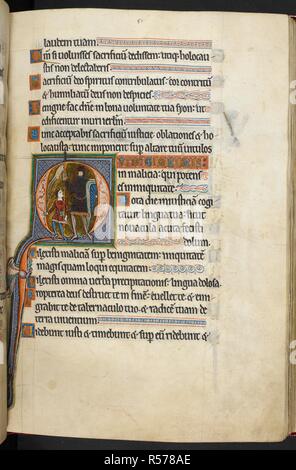 laudem tuam.
m si uoluisses sacrificiū dedissem: utiq; holocau
stis non delectaberis.
acrificiū deo spiritus contribulatus: cor contritū
& humiliatū deus non despicies.
enigne fac dn̄e in bona uoluntate tua syon: ut
edificentur muri ierl̄m.
unc acceptabis sacrificiū iusticie oblationes & ho
locausta: tunc imponent sup altare tuū uitulos.
in malicia: qui potens
es iniquitate.
ota die iniusticiā cogi
tauit lingua tua: sicut
nouacula acuta fecisti
dolum.
ilexisti maliciā sup benignitatem: iniquitatē
magis quam loqui equitatem.
ilexisti omnia uerba precipitationis: lingua dolosa.
ropterea deus destruet te in finē: euellet te & emi
grabit te de tabernaculo tuo: & radicē tuam de
terra uiuentium.
idebunt iusti & timebunt & sup eū ridebunt &
alamy
R578AE